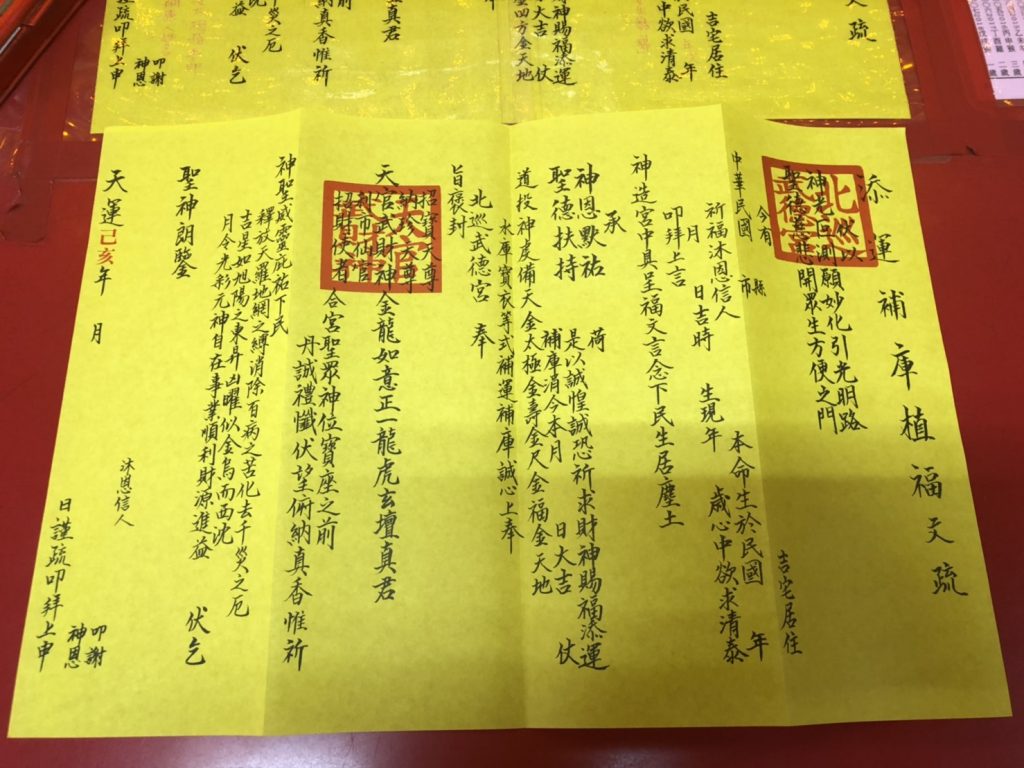 添運補庫植福天疏
伏以
神光叵測願妙化引光明路
聖德慈悲開眾生方便之門
今有
中華民國 縣市 吉宅居住
祈福沐恩信人 本命生於民國 年
月 日吉時 生現年 歲心中欲求清泰
叩拜上言
神造宮中具呈福文言念下民生居塵土
承
神恩默祐 荷
聖德扶持 是以誠惶誠恐祈求財神賜福添運
補庫消今本月 日大吉 仗
道投神虔備天金太極金壽金尺金福金天地
水庫寶衣等式補運補庫誠心上奉
北巡武德宮 奉
旨褒封
招寶天尊
納珍天尊
天官武財神金龍如意正一龍虎玄壇真君
利市仙官
招財使者 合宮聖眾神位寶座之前
丹誠禮懺伏望俯納真香惟祈
神聖威靈庇祐下民
釋放天羅地網之縛消除百病之苦化去千災之厄
吉星如旭陽之東昇凶曜似金烏而西沈
月令光彩元神自在事業順利財源進益 伏乞
聖神朗鑒
沐恩信人
叩謝
神恩
天運己亥年 月 日謹疏叩拜上申
天疏
吉宅居住
民國 年
中欲求清泰
神賜福添運
大吉 仗
納真香惟祈
伏乞
叩謝
神恩
謹疏叩拜上申